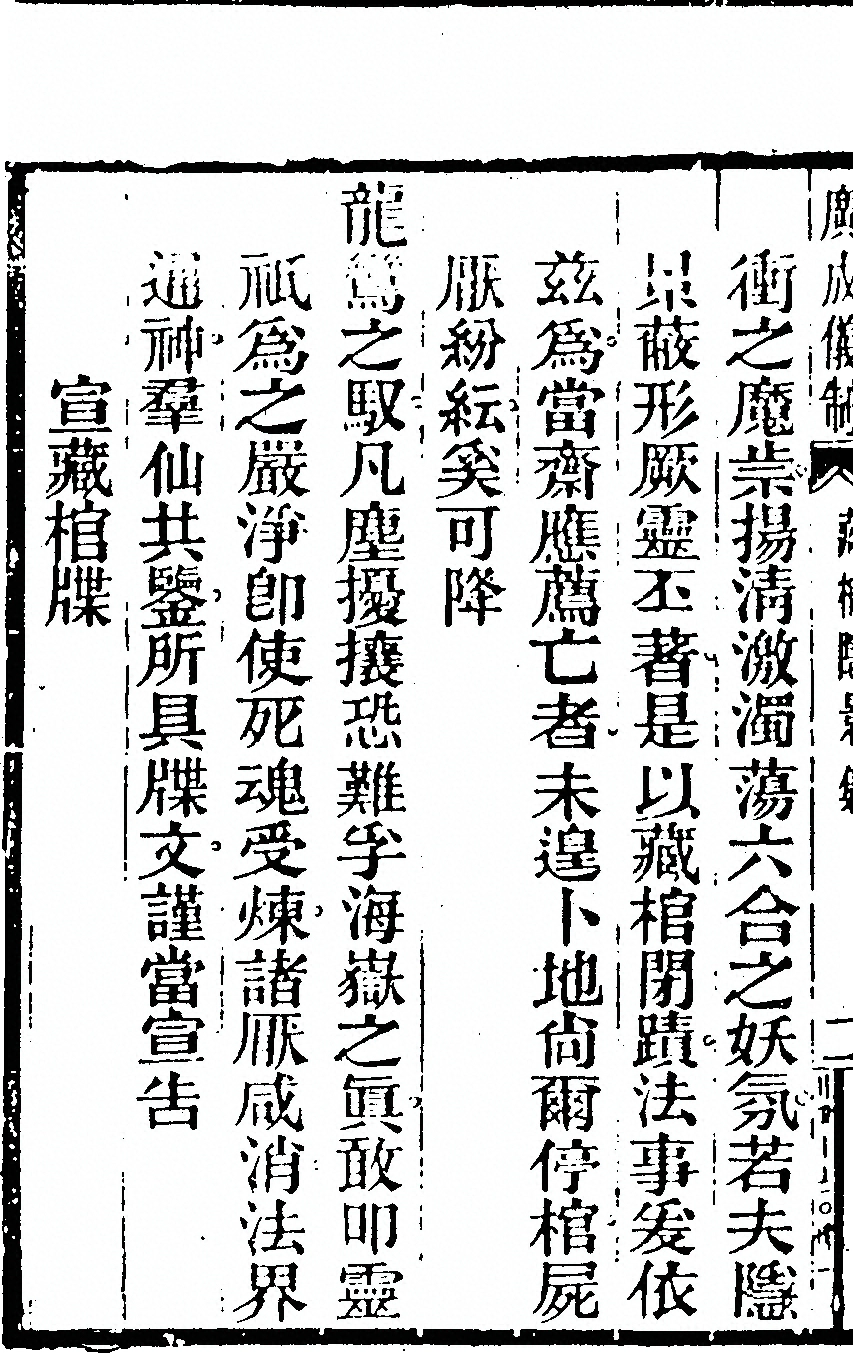 廣成儀制 藏棺隱景集 二
衝之魔祟揚清激濁蕩六合之妖氛若夫隱
景蔽形厥靈丕著是以藏棺閉蹟法事爰依
茲為當齋應薦亡者未遑卜地尙爾停棺屍
厭紛紜奚可降
龍鸞之馭凡塵擾攘恐難孚海嶽之眞敢叩靈
祇為之嚴淨卽使死魂受煉諸厭咸消法界
通神羣仙共鑒所具牒文謹當宣告
宣藏棺牒